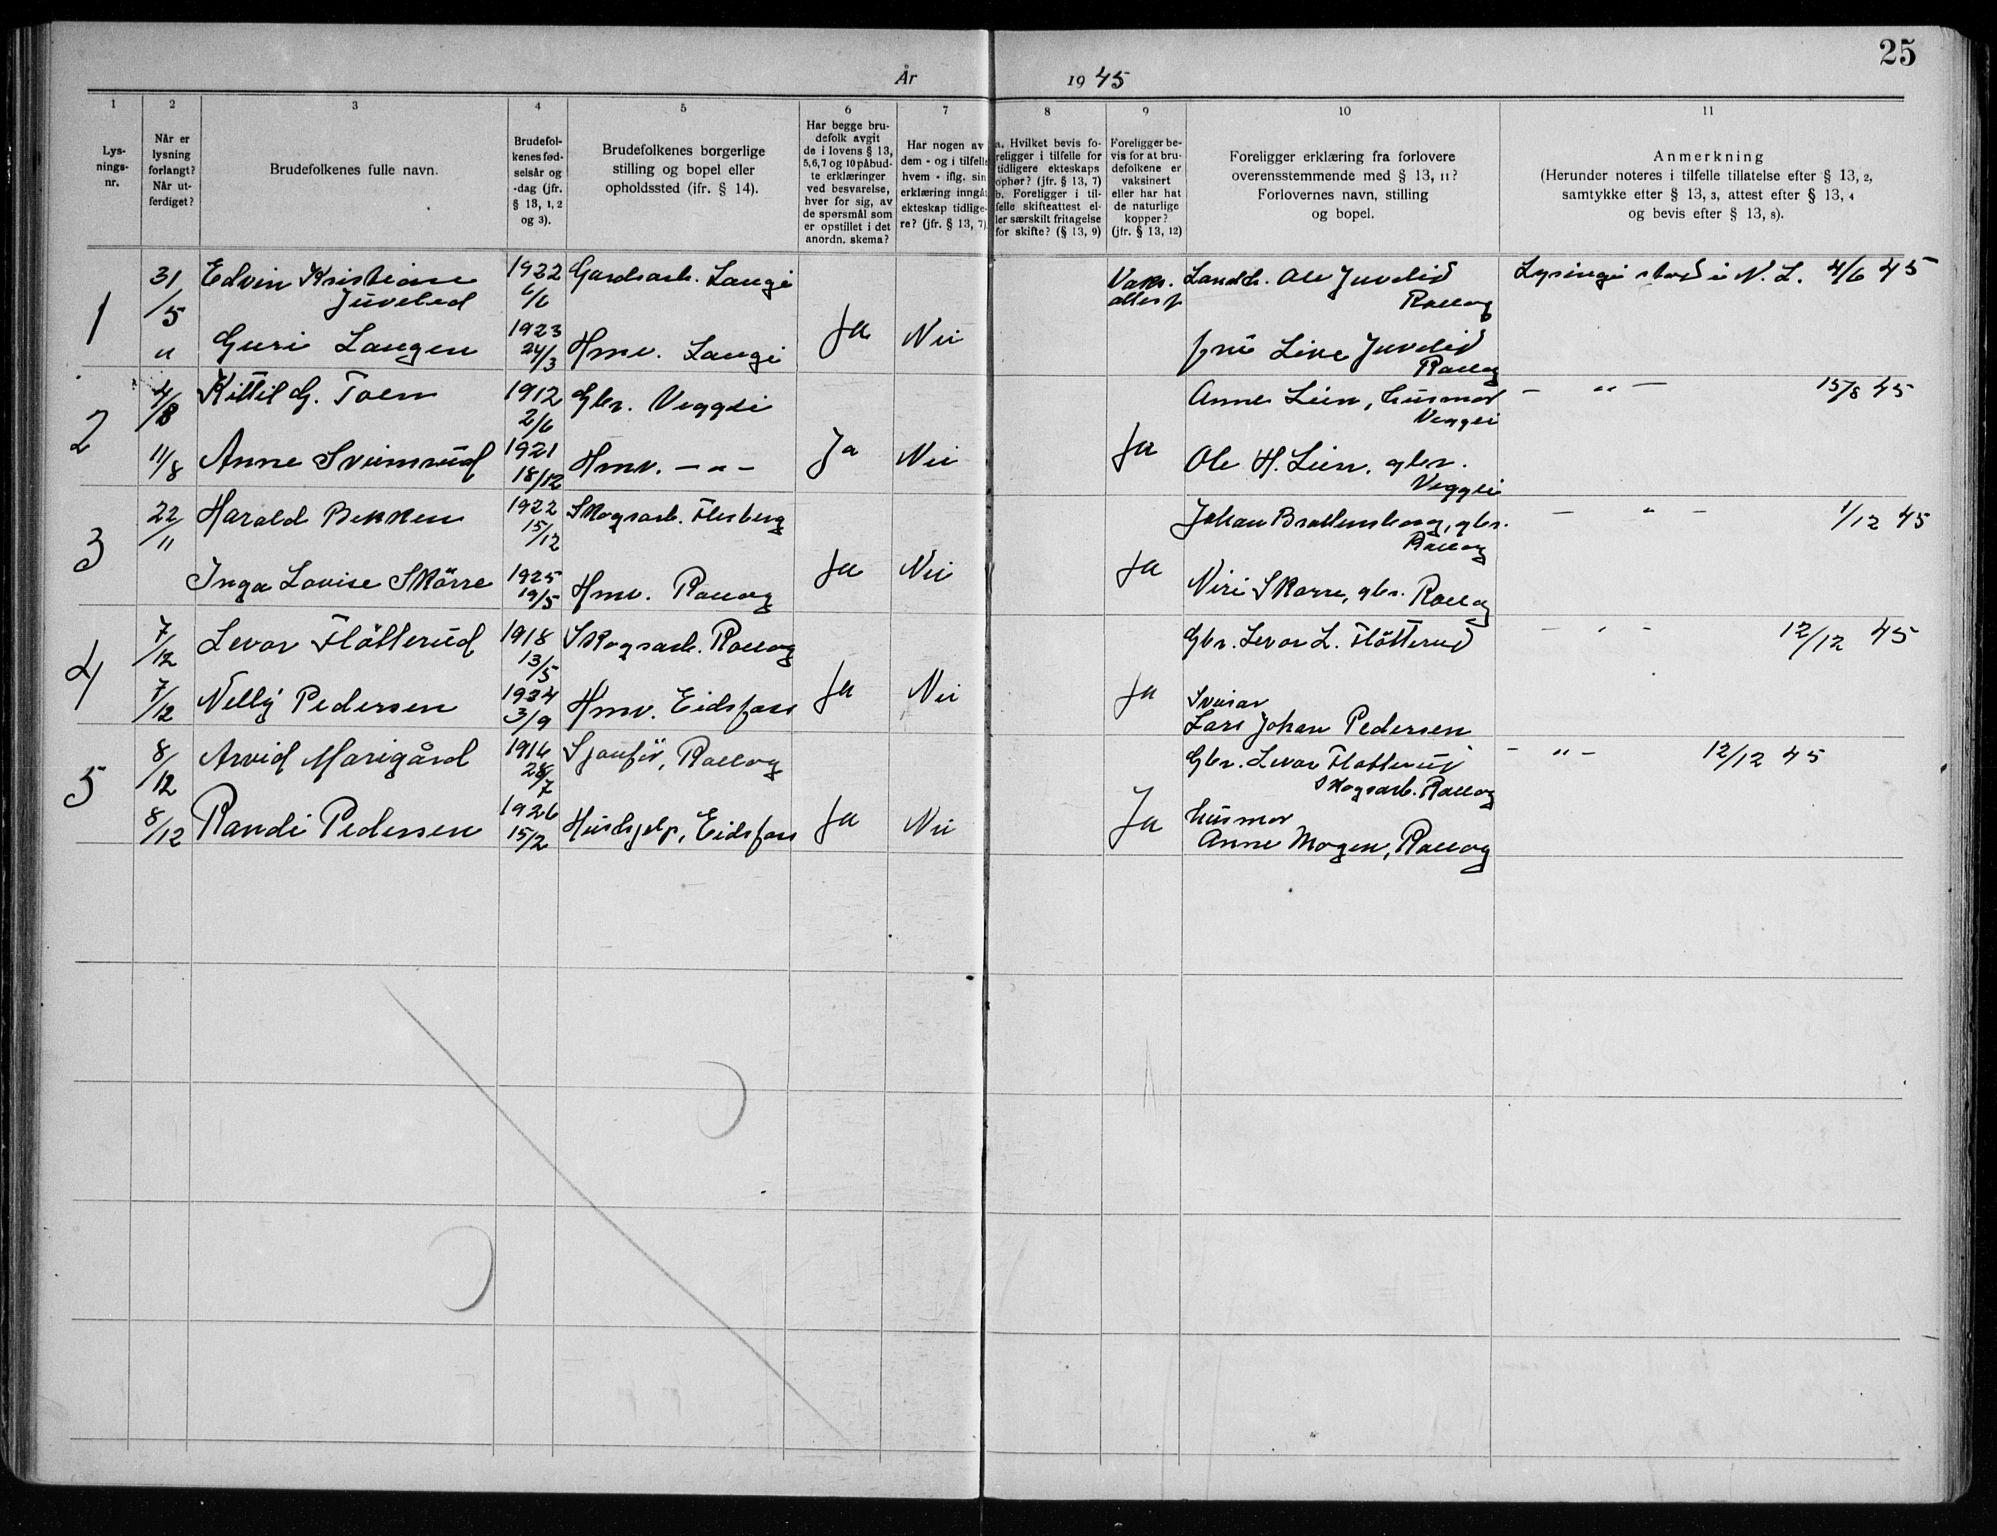 25
År 1945
1 2 3 4 5 6 7 8 9 10 11
Lys-
nings-
nr.
Når er
lysning
forlangt?
Når ut-
ferdiget?
Brudefolkenes fulle navn.
Brudefol-
kenes fød-
selsår og
-dag (jfr.
§ 13, 1, 2
og 3).
Brudefolkenes borgerlige
stilling og bopel eller
opholdssted (ifr. § 14).
Har begge bru-
defolk avgit
de i lovens § 13,
5,6,7 og 10 påbud-
te erklæringer
ved besvarelse,
hver for sig, av
de spørsmål som
er opstillet i det
anordn. skema?
Har nogen av
dem - og i tilfelle
hvem - iflg. sin
erklæring inngått
ekteskap tidlige-
re? (jfr. § 13, 7)
a. Hvilket bevis fo-
religger i tilfelle for
tidligere ekteskaps
ophør? (jfr. § 13, 7)
b. Foreligger i til-
felle skifteattest el-
ler særskilt fritagelse
for skifte? (§ 13, 9)
Foreligger be-
vis for at bru-
defolkene er
vaksinert
eller har hat
de naturlige
kopper?
(jfr. § 13, 12)
Foreligger erklæring fra forlovere
overensstemmende med § 13, 11?
Forlovernes navn, stilling
og bopel.
Anmerkning
(Herunder noteres i tilfelle tillatelse efter § 13, 2,
samtykke efter § 13, 3, attest efter § 13, 4
og bevis efter § 13, 8).
1 31/5 Edvin Kristian 1922 Gardsarb. Laugi Vaks. Landh. Ole Juvelid Lysingi stod i N. L. 4/6 45
Juvelid 6/6 attest Rollag
" Guri Laugen 1923 24/3 Hmv. Laugi Ja Nei fru Live Juvelid
Rollag
2 4/8 Kittil G. Toen 1912 2/6 Gbr. Veggli Anne Lien, husmor – " – 15/8 45
Veggli
11/8 Anne Svimrud 1921 18/12 Hmv. – " – Ja Nei Ja Ole H. Lien, gbr.
Veggli
3 22/11 Harald Bekken 1922 15/12 Skogsarb. Flesberg Johan Brattensborg, gbr. – " – 1/12 45
Rollag
Inga Lovise Skårre 1925 19/5 Hmv. Rollag Ja Nei Ja Niri Skarre, gbr. Rollag
4 7/12 Levor Fløtterud 1918 13/5 Skogsarb. Rollag Gbr. Levor L. Fløtterud – " – 12/12 45
7/12 Nelly Pedersen 1924 3/9 Hmv. Eidsfoss Ja Nei Ja Sveisar
Lars Johan Pedersen
5 8/12 Arvid Marigård 1916 28/7 Sjaufør, Rollag Gbr. Levor Fløtterud – " – 12/12 45
Skogsarb. Rollag
8/12 Randi Pedersen 1926 15/2 Hushjelp, Eidsfoss Ja Nei Ja husmor
Anne Mogen, Rollag